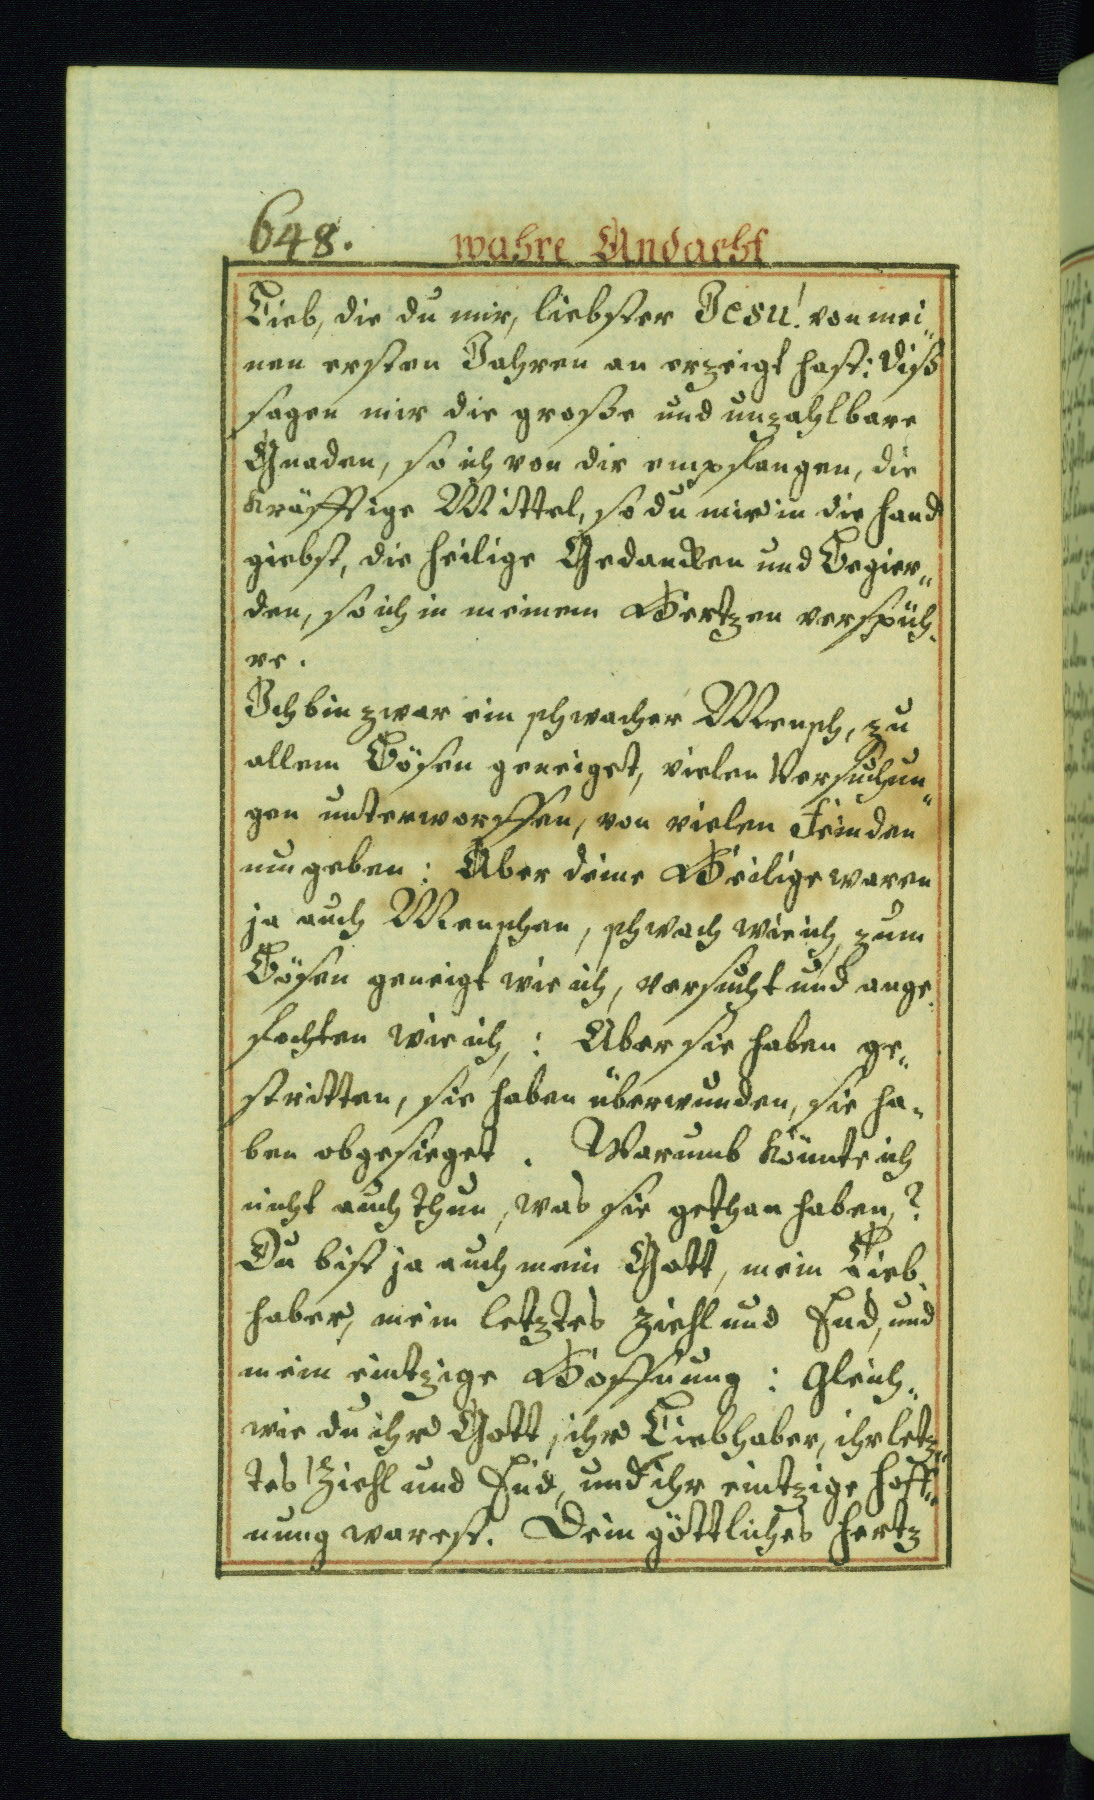 648. wahre Andacht
Lieb, die du mir, liebster Jesu! von mei„
nen ersten Jahren an erzeigt hast: diß
sagen mir die große und unzahlbare
Gnaden, so ich von dir empfangen, die
kräfftige Mittel, so du mir in die hand
giebst, die heilige Gedancken und Begier„
den, so ich in meinem Hertzen verspüh„
re.
Ich bin zwar ein schwacher Mensch, zu
allem Bösen geneiget, vielen Versuchun„
gen unterworffen, von vielen Feinden
umgeben: Aber deine Heilige waren
ja auch Menschen, schwach wie ich, zum
Bösen geneigt wie ich, versucht und ange„
fochten wie ich,: Aber sie haben ge„
stritten, sie haben überwunden, sie ha„
ben obgesieget. Warumb könnte ich
nicht auch thun, was sie gethan haben,?
Du bist ja auch mein Gott, mein Lieb„
haber, mein letztes Ziehl und End, und
mein eintzige Hoffnung: Gleich„
wie du ihr Gott, ihr Liebhaber, ihr letz„
tes Ziehl und End, und ihr eintzige hoff„
nung warest. Dein göttliches Hertz